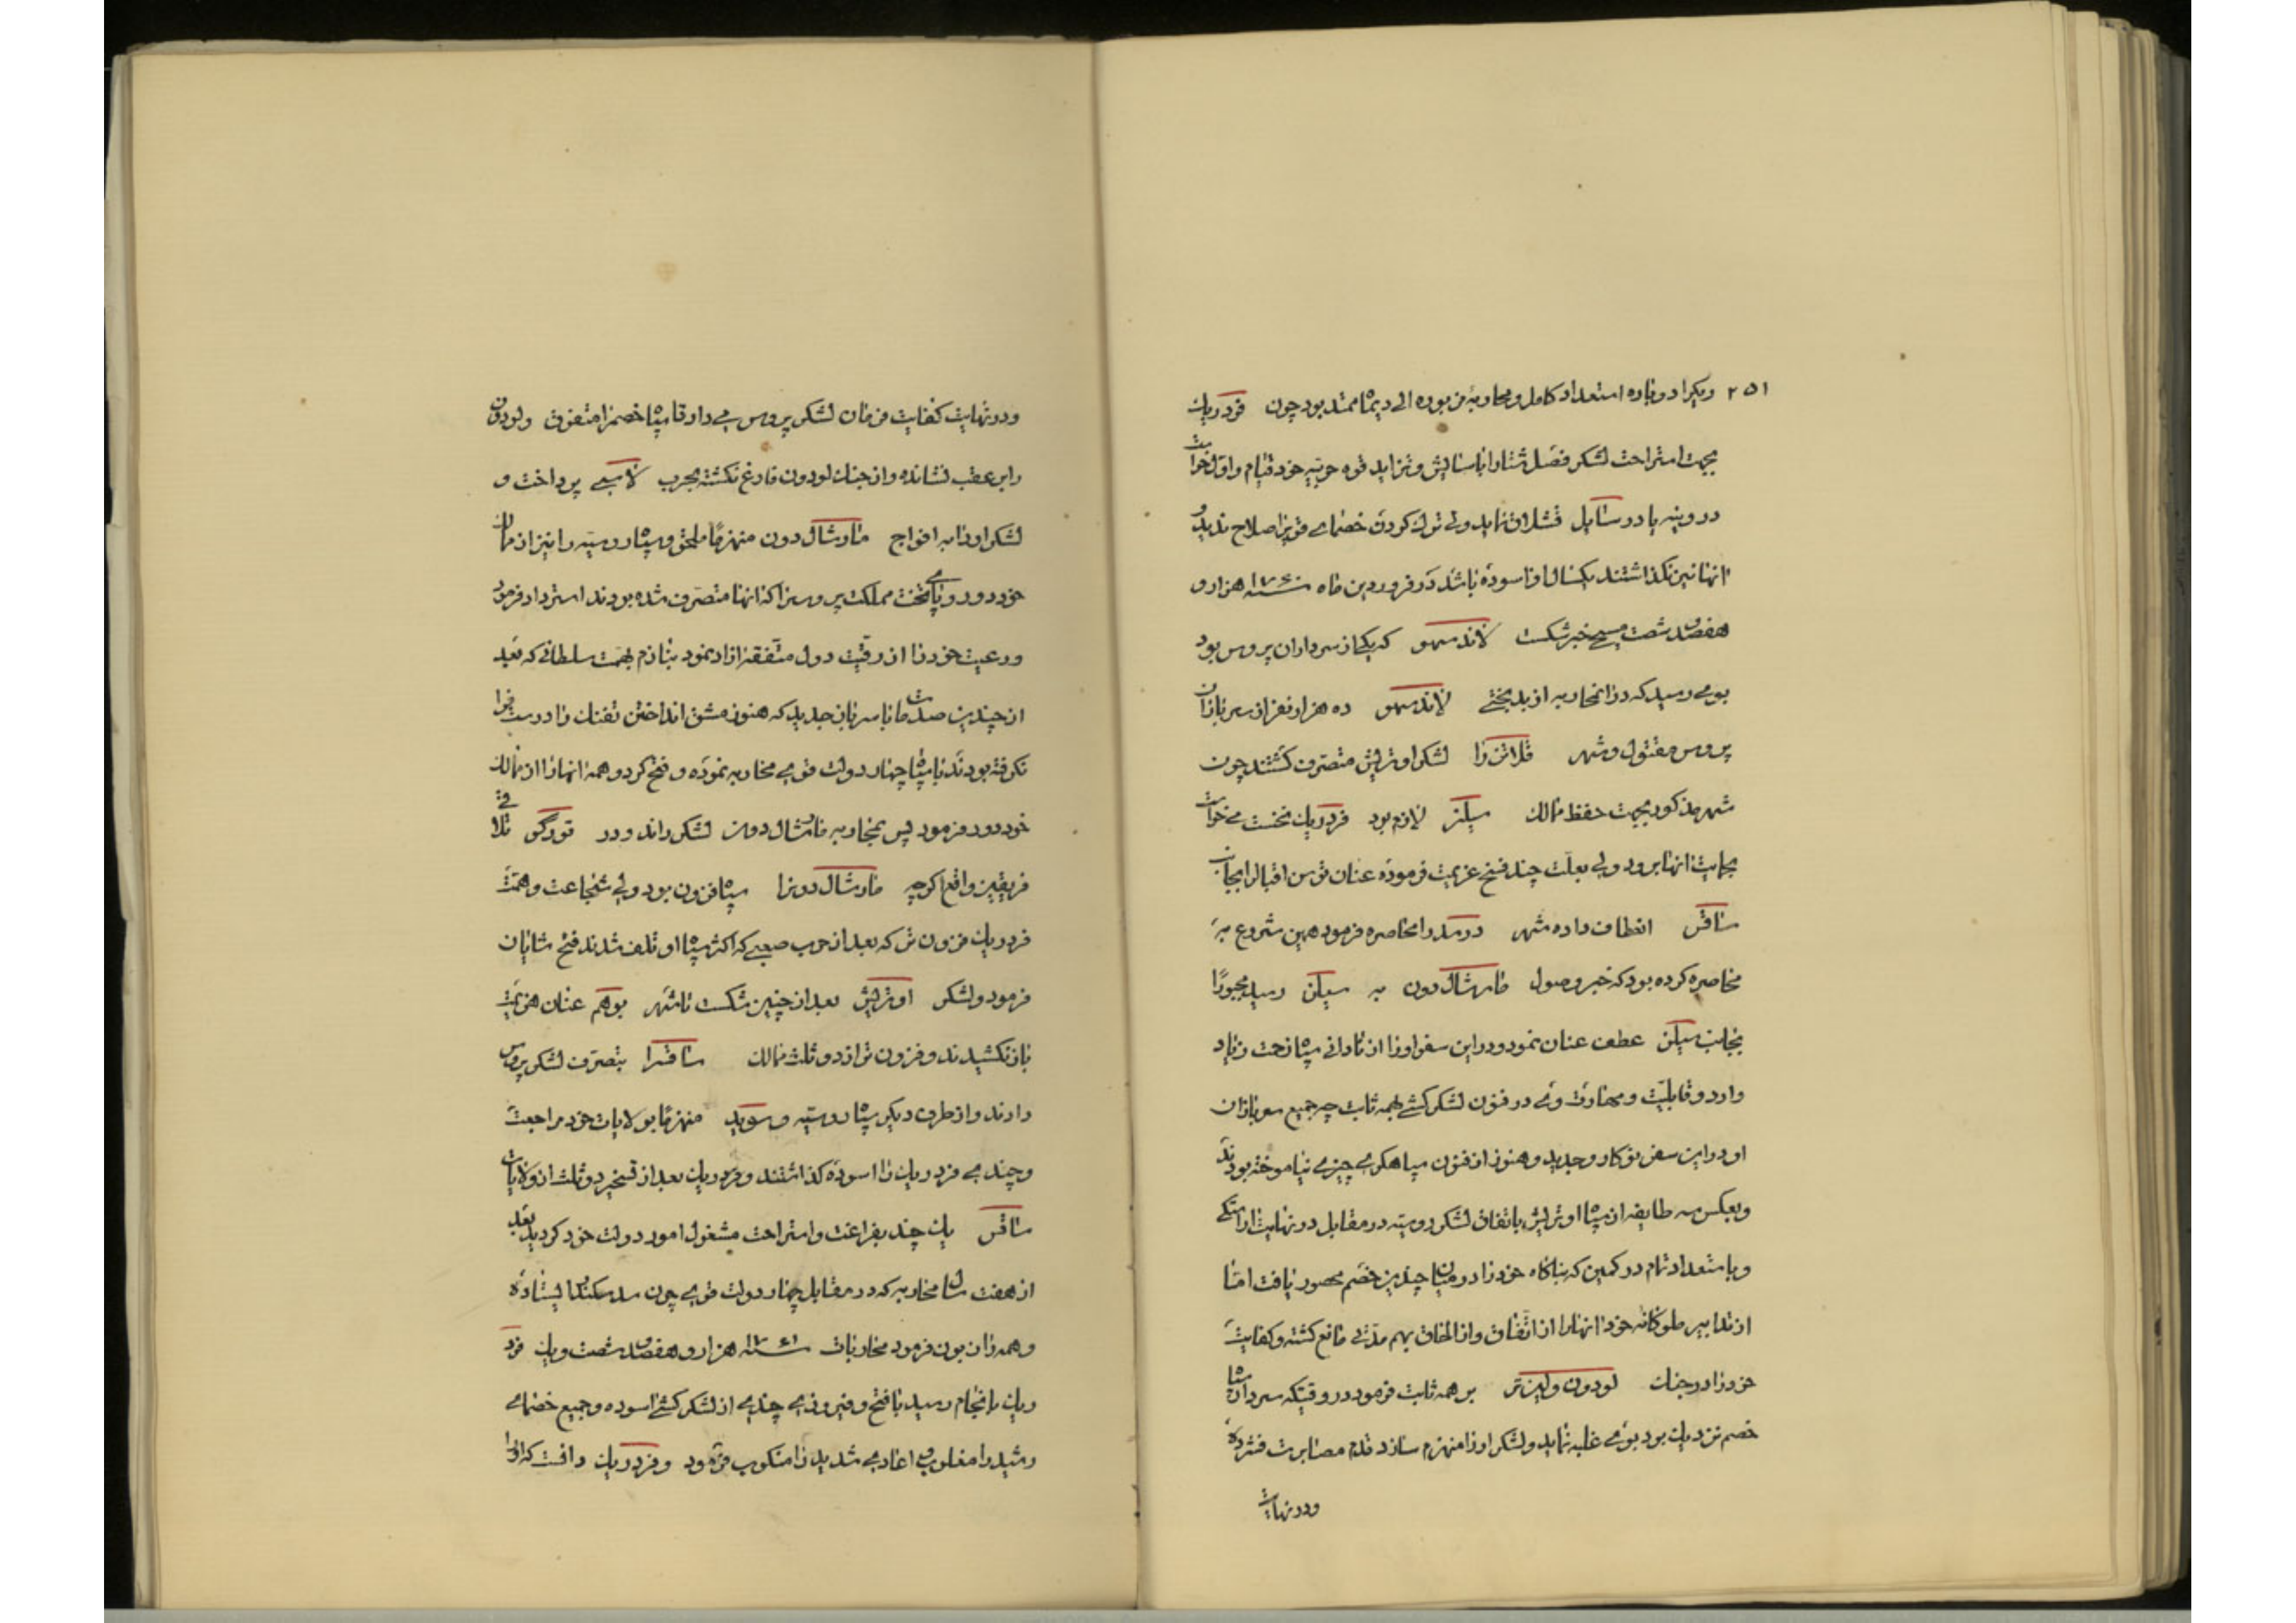 ۲۵۱ دیکرا دوباره استعداد کامل و محاربهٔ من بوده الی دیما ممتد بود چون فردریك
بجهت استراحت لشکر فصل شتا را باسایش و تزاید قوه حربیه خود قیام و اول خواست
در وینه یا در ستایل قشلاق نماید ولی ترك کردن خصمای قویرا صلاح ندید و
انها نیز نکذاشتند یکسال اقا اسوده باشد در فروردین ماه سنه ۱۷۶۰ هزار و
هفصد و شصت مسیحی خبر شکست لاندسهو که یکی از سرداران پروس بود
بوی رسید که در انمحاربه از بدبختی لاندسهو ده هزار نفر از سربازان
پروس مقتول و شهر قلاتن را لشکر اوتریش متصرف کشتند چون
شهر مذکور بجهت حفظ ممالك سیلز لازم بود فردریك نخست می خواست
بحمایت انها برود ولی بعلت چند فسخ عزیمت فرموده عنان توسن اقبال را بجانب
ساقس انعطاف داده شهر درسد را محاصره فرمود همین شروع به
محاصره کرده بود که خبر وصول مارشال دون به سیلن رسید مجبورًا
بجانب سیلن عطف عنان نمود و در این سفر او را از نادانی سپاه زحمت زیاد
وارد و قابلیت و مهارت وی در فنون لشکر کشی بهمه ثابت چه جمیع سربازان
او در این سفر نوکار و جدید و هنوز از فنون سپاهکری چیزی نیاموخته بودند
و بعکس سه طایفه از سپاه اوتریش باتفاق لشکر روسیه در مقابل در نهایت اراستکی
و با استعداد تمام در کمین که بناکاه خود را در میان چندین خصم محصور یافت امّا
از تدابیر ملوکانه خود انها را از اتّفاق و از الحاق بهم مدّتی مانع کشته و کفایت
خود را در جنك لودون ولیزتر بر همه ثابت فرمود در وقتیکه سرداران سپاه
خصم نزدیك بود بوی غلبه نماید و لشکر او را منهزم سازد قدم مصابرت فشرده
و در نهایت
و در نهایت کفایت فرمان لشکر پروس می داد تا سپاه خصم را متفرق و لودون
را بر عقب نشانده و از جنك لودون فارغ نکشته بحرب لاسی پرداخت و
لشکر او را به افواج مارشال دون منهزمًا ملحق و سپاه روسیه را نیز از ممالك
خود دور و پای تخت مملکت پروس را که انها متصرف شده بودند استرداد فرمود
و رعیت خود را از رقیت دول متفقه ازاد نمود بنازم بهمت سلطانی که بعد
از چندین صدمات با سربان جدید که هنوز مشق انداختن تفنك را درست فرا
نکرفته بودند با سپاه چهار دولت قوی محاربه نموده و فتح کرد و همه انها را از ممالك
خود دور فرمود پس بمحاربه مارشال دون لشکر راند و در تورکی تلاقی
فریقین واقع اکرچه مارشال دون را سپاه فزون بود ولی شجاعت و همّت
فردریك فزون تر که بعد از حرب صعبی که اکثر سپاه او تلف شدند فتح شایان
فرمود و لشکر اوتریش بعد از چنین شکست تا شهر بوهم عنان هزیمت
باز نکشیدند و فزون تر از دو ثلث ممالك ساقس را بتصرف لشکر پروس
دادند و از طرف دیکر سپاه روسیه و سوید منهزمًا بولایات خود مراجعت
و چندی فردریك را اسوده کذاشتند و فردریك بعد از تسخیر دو ثلث از ولایات
ساقس یك چند بفراغت و استراحت مشغول امور دولت خود کردید بعد
از هفت سال محاربه که در مقابل چهار دولت قوی چون سد سکندر ایستاده
و همه را زبون فرمود محاربات سنه ۱۷۶۱ هزار و هفصد و شصت و یك فرد
ریك بانجام رسید با فتح و فیروزی چندی از لشکر کشی اسوده و جمیع خصمای
رشید را مغلوب و اعادی شدید را منکوب فرمود و فردریك دانست که او را